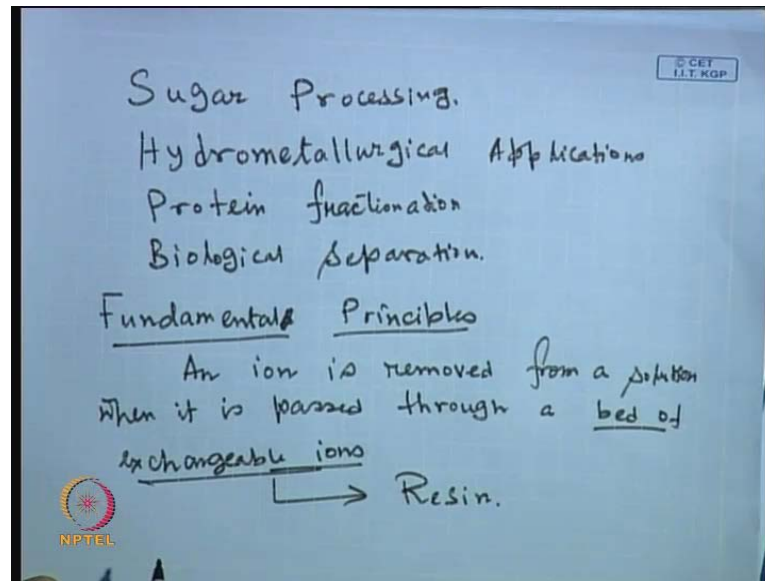 © CET
I.I.T. KGP
Sugar Processing.
Hydrometallurgical Applications
Protein fractionation
Biological Separation.
Fundamental Principles
An ion is removed from a solution
when it is passed through a bed of
exchangeable ions
Resin.
NPTEL